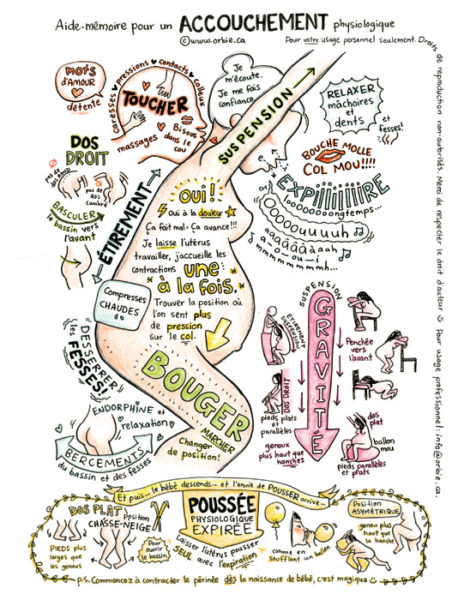 Aide-mémoire pour un ACCOUCHEMENT physiologique
©www.orbie.ca
Pour votre usage personnel seulement. Droits de reproduction non-autorisés. Merci de respecter le droit d'auteur Pour usage professionnel: info@orbie.ca.
MOTS
d'AMOUR
détente
caresses pressions contacts calleux
TOUCHER
massages
Bisous
dans le
cou
Je
m'écoute.
Je me fais
confiance.
SUSPENSION
RELAXER
mâchoires
et
dents
et
fesses!
BOUCHE MOLLE
COL MOU!!!!
EXPIIIIIIIRE
looooooooongtemps...
ouuuuuuh
aaaaaaaaah
a-o-ou-i
mmmmmmmmh...
DOS
DROIT
pas de
dos
cambré
BASCULER
le bassin vers
l'avant
ÉTIREMENT
OUI!
Oui à la douleur
Ça fait mal. Ça avance!!!
Je laisse l'utérus
travailler, j'accueille les
contractions une
à la fois.
Trouver la position où
l'on sent plus
de pression
sur le col.
Compresses
CHAUDES
DESSERRER
les FESSES!
BOUGER
MARCHER
Changer
de position!
ENDORPHINE et
relaxation
BERCEMENTS
du bassin et des fesses
SUSPENSION
GRAVITÉ
ÉTIREMENT
SUSPENSION
Penchée
vers
l'avant
DOS DROIT
pieds plats
et
parallèles
genoux
plus haut que
hanches
dos
plat
ballon
mou
pieds parallèles
et plats
Et puis... le bébé descends... et l'envie de POUSSER arrive...
DOS PLAT
Position
CHASSE-NEIGE
PIEDS plus
larges que
les genoux
Pour
ouvrir
le bassin
POUSSÉE
PHYSIOLOGIQUE
EXPIRÉE
Laisser l'utérus pousser
SEUL avec l'expiration
comme en
soufflant un ballon
Position
ASYMÉTRIQUE
genou plus
haut que
la hanche
p.s. Commencez à contracter le périnée dès la naissance de bébé, c'est magique